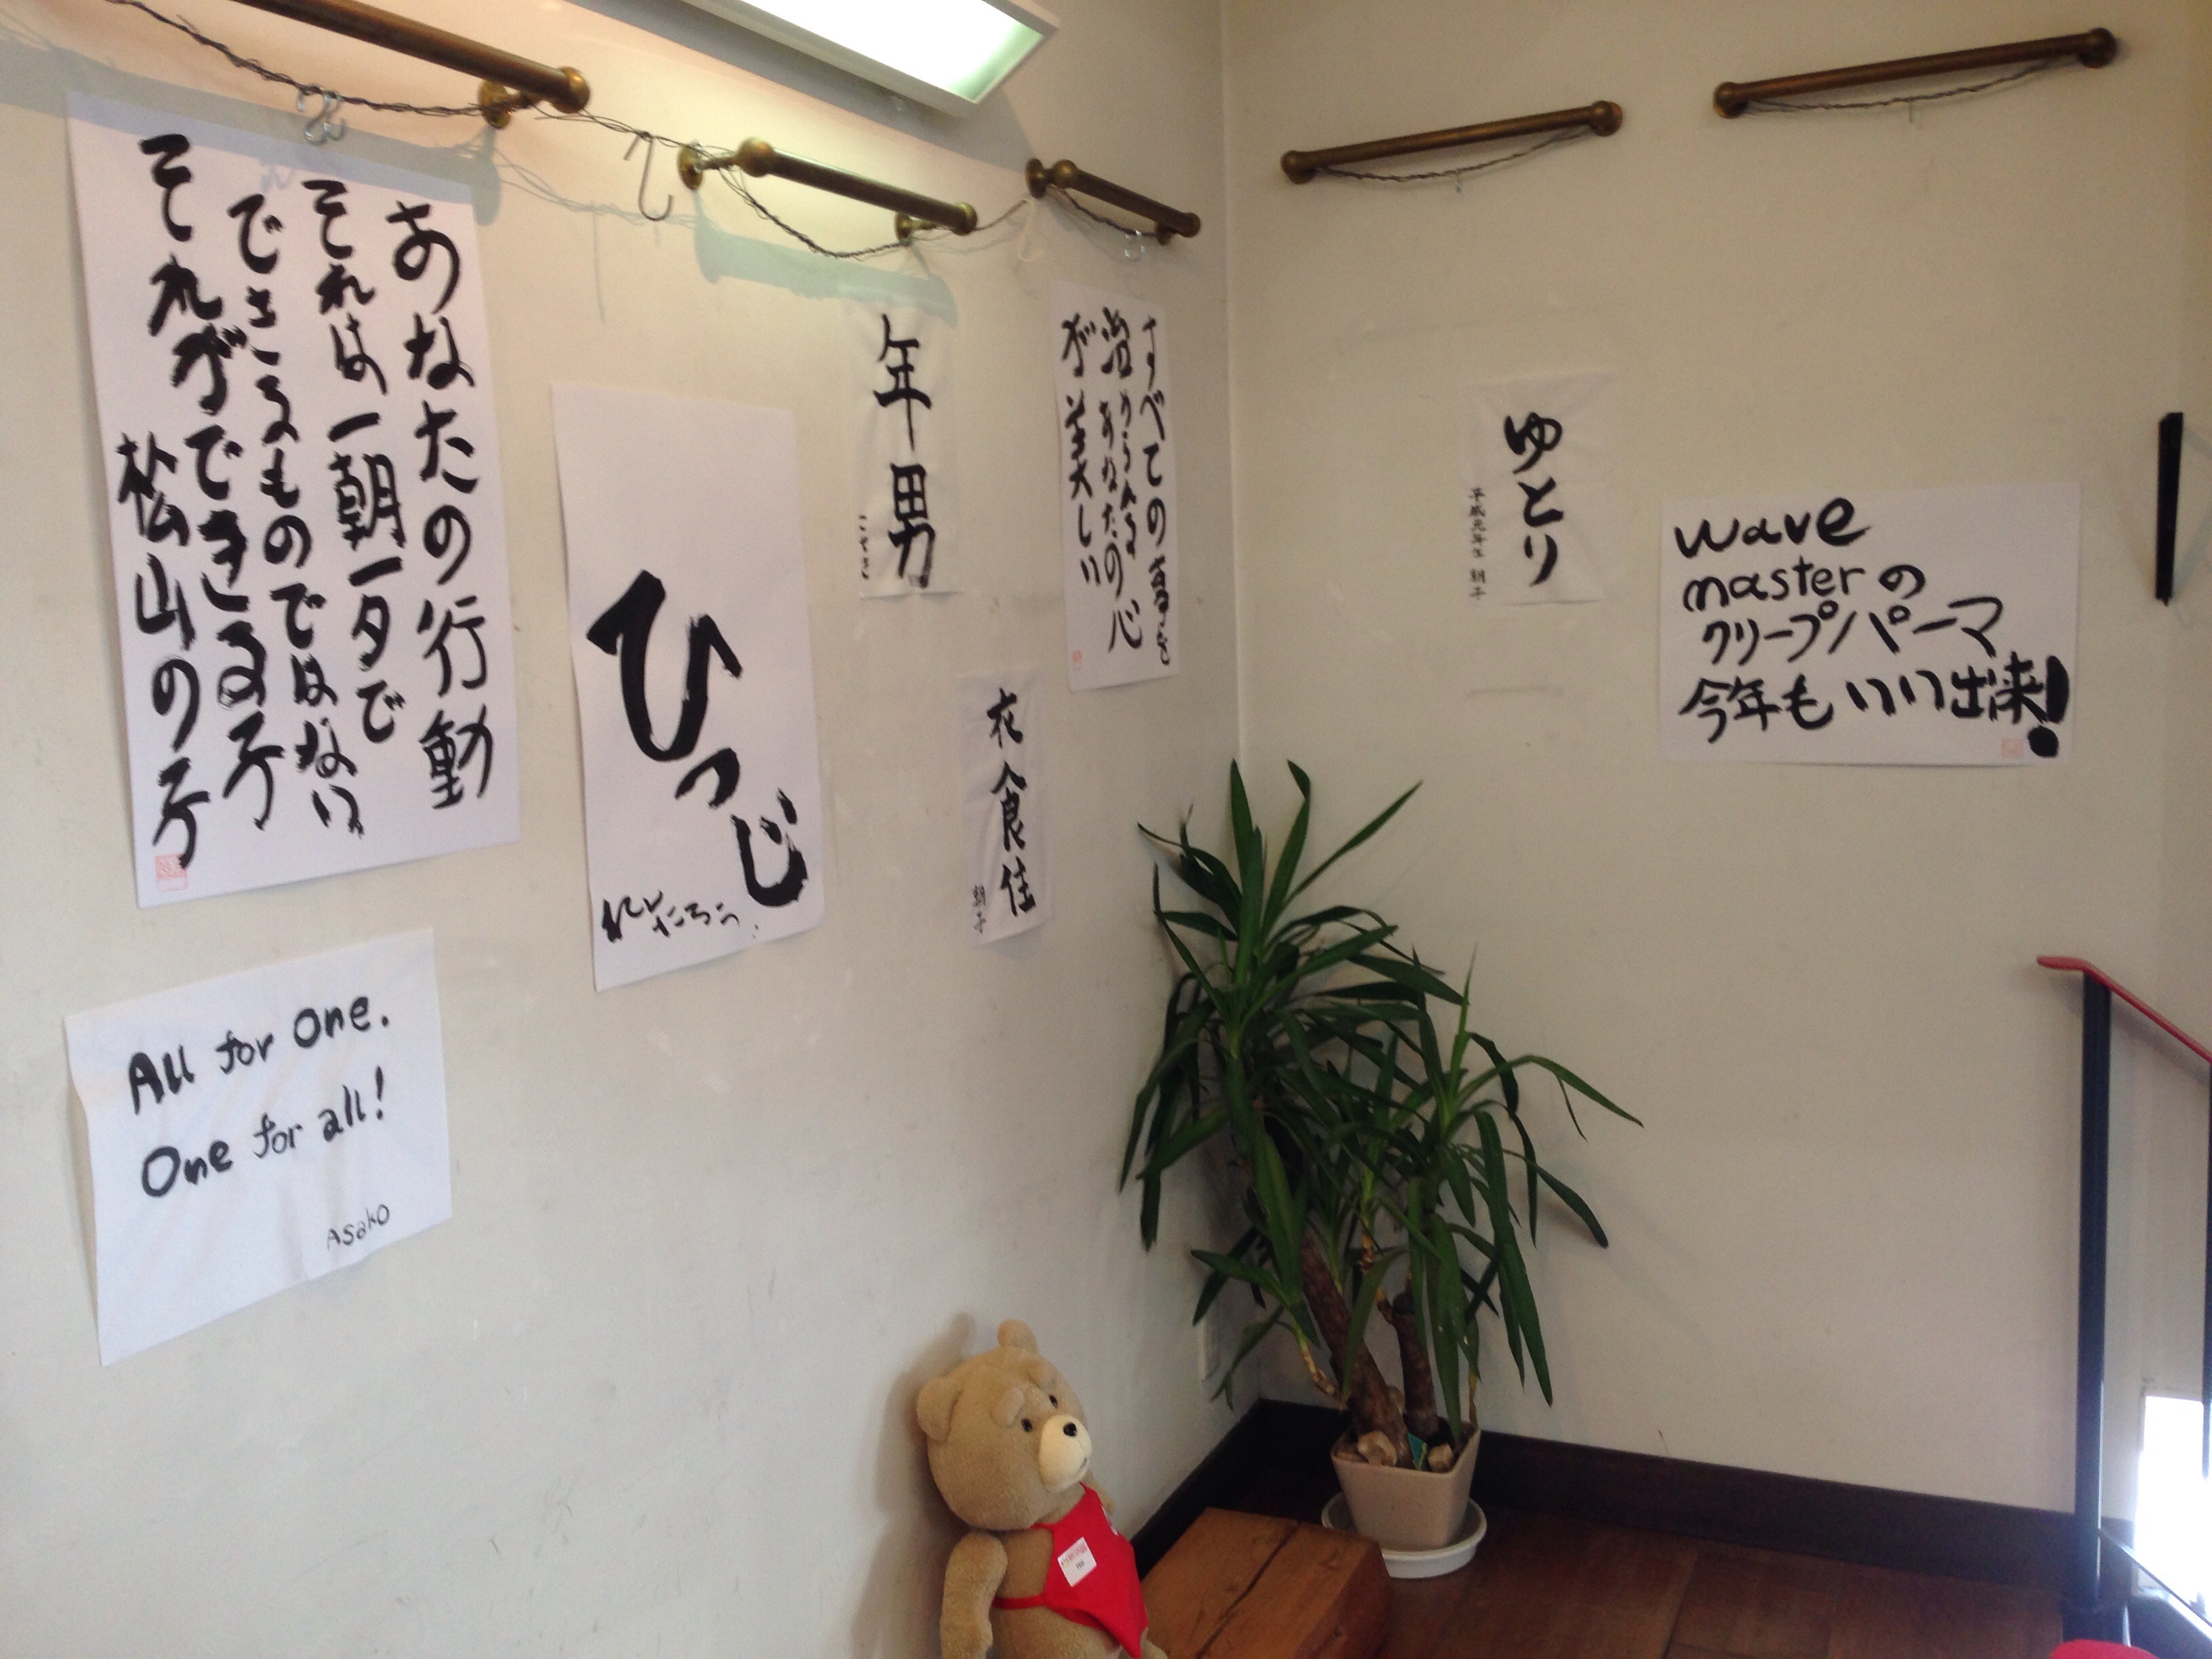 あなたの行動
それは一朝一夕で
できるものではない
それができる子
松山の子
All for One.
One for all!
Asako
ひつじ
年男
すべての事を
あなたの心
が美しい
衣食住
朝子
ゆとり
平成元年生 朝子
wave
masterの
クリープパーマ
今年もいい出来!